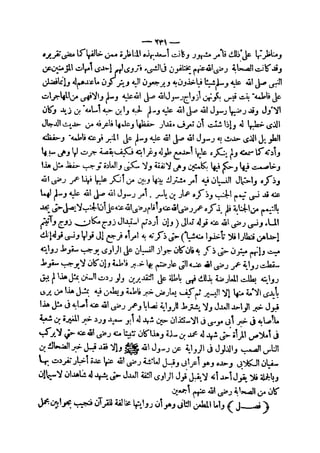 — ٢٣١ —
ومناظرتها على ذلك فأمر مشهور وكانت أسعد بهذه المناظرة ممن خالفها كما مضى تقريره
وقد كانت الصحابة رضى الله عنهم يختلفون فى الشىء فتروى لهم إحدى أمهات المؤمنين عن
النبى صلى الله عليه وسلم شيئا فيأخذون به ويرجعون اليه ويتركون ما عندهم له وإنما فضلن
على فاطمة بنت قيس بكونهن أزواج رسول الله صلى الله عليه وسلم وإلا فهى من المهاجرات
الاول وقد رضيها رسول الله صلى الله عليه وسلم لحبه وابن حبه أسامة بن زيد وكان
الذى خطبها له وإذا شئت أن تعرف مقدار حفظها وعلمها فاعرفه من حديث الدجال
الطويل الذى حدث به رسول الله صلى الله عليه وسلم على المنبر فوعته فاطمة وحفظته
وأدته كما سمعته ولم ينكره عليها أحد مع طوله وغرابته فكيف بقصة جرت لها وهى سببها
وخاصمت فيها وحكم فيها بكلمتين وهى لا نفقة ولا سكنى والعادة توجب حفظ مثل هذا
وذكره واحتمال النسيان فيه أمر مشترك بينها وبين من أنكر عليها فهذا عمر رضى الله
عنه قد نسى تيمم الجنب وذكره عمار بن ياسر أمر رسول الله صلى الله عليه وسلم لهما
بالتيمم من الجنابة فلم يذكره عمر رضى الله عنه وأقام رضى الله عنه على أن الجنب لا يصلى حتى يجد
الماء ونسى رضى الله عنه قوله تعالى (وإن أردتم استبدال زوج مكان زوج وآتيتم
إحداهن قنطارا فلا تأخذوا منه شيئا) حتى ذكرته به امرأة فرجع إلى قولها ونسى قوله إنك
ميت وإنهم ميتون حتى ذكر به فان كان جواز النسيان على الراوى يوجب سقوط روايته
سقطت رواية عمر رضى الله عنه التى عارضتم بها خبر فاطمة وإن كان لا يوجب سقوط
روايته بطلت المعارضة بذلك فهى باطلة على التقديرين ولو ردت السنن بمثل هذا لم يبق
بأيدى الأمة منها إلا اليسير ثم كيف يعارض خبر فاطمة ويطعن فيه بمثل هذا من يرى
قبول خبر الواحد العدل ولا يشترط للرواية نصابا وعمر رضى الله عنه أصابه فى مثل هذا
ما أصابه فى خبر أبى موسى فى الاستئذان حتى شهد له أبو سعيد ورد خبر المغيرة بن شعبة
فى أملاص المرأة حتى شهد له محمد بن مسلمة وهذا كان تثبيتا منه رضى الله عنه حتى لا يركب
الناس الصعب والذلول فى الرواية عن رسول الله ﷺ وإلا فقد قبل خبر الضحاك بن
سفيان الكلابى وحده وهو أعرابى وقبل لعائشة رضى الله عنها عدة أخبار تفردت بها
وبالجملة فلا يقول أحد أنه لا يقبل قول الراوى الثقة العدل حتى يشهد له شاهدان لا سيما إن
كان من الصحابة رضى الله عنهم أجمعين
(فصـــل) وأما المطعن الثانى وهو أن روايتها مخالفة للقرآن فنجيب بجوابين مجمل